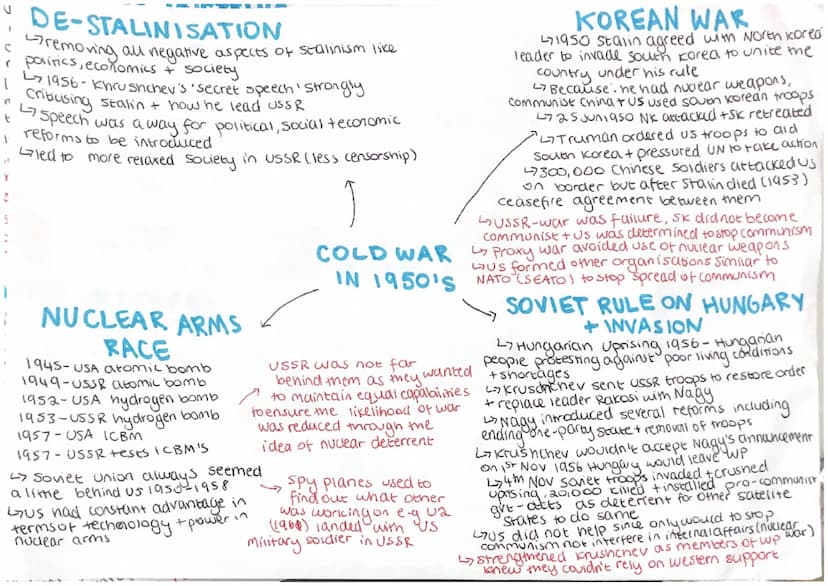 DE-STALINISATION
↳removing all negative aspects of Stalinism like
politics, economics + society
↳1956- Khrushchev's 'secret speech' strongly
critising Stalin + how he lead USSR
↳Speech was a way for political, social + economic
reforms to be introduced
↳led to more relaxed society in USSR (less censorship)
KOREAN WAR
↳1950 Stalin agreed with North Korea
leader to invade South Korea to unite the
country under his rule
↳Because: he had nuclear weapons,
communist China + US used South Korean troops
↳25 Jun 1950 NK attacked + SK retreated
↳Truman ordered US troops to aid
South Korea + pressured UN to take action
↳300,000 Chinese soldiers attacked US
on border but after Stalin died (1953)
ceasefire agreement between them
↳USSR-war was failure, SK did not become
communist + US was determined to stop communism
↳Proxy war avoided use of nuclear weapons
↳US formed other organisations similar to
NATO (SEATO) to stop spread of communism
COLD WAR
IN 1950'S
NUCLEAR ARMS
RACE
1945-USA atomic bomb
1949-USSR atomic bomb
1952-USA hydrogen bomb
1953-USSR hydrogen bomb
1957-USA ICBM
1957-USSR tests ICBM's
↳Soviet union always seemed
a little behind US 1950-1958
↳US had constant advantage in
terms of technology + power in
nuclear arms
USSR was not far
behind them as they wanted
to maintain equal capabilities
to ensure the likelihood of war
was reduced through the
idea of nuclear deterrent
Spy planes used to
find out what other
was working on e.g U2
(1960) landed with US
military soldier in USSR
SOVIET RULE ON HUNGARY
+ INVASION
↳Hungarian Uprising 1956 - Hungarian
people protesting against poor living conditions
+ shortages
↳Kruschchev sent USSR troops to restore order
+ replace leader Rakosi with Nagy
↳Nagy introduced several reforms including
ending one-party state + removal of troops
↳Krushchev wouldn't accept Nagy's announcement
on 1st Nov 1956 Hungary would leave WP
↳4th Nov Soviet troops invaded + crushed
uprising, 20,000 killed + installed pro-communist
gvt-acts as deterrent for other satellite
states to do same
↳US did not help since only would to stop
communism not interfere in internal affairs (nuclear
war)
↳strengthened Krushchev as members of WP
knew they couldn't rely on western support